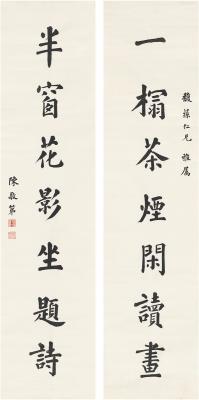 馥蓀仁兄 雅屬
一榻茶煙閑讀畫
半窗花影坐題詩
陳敬第